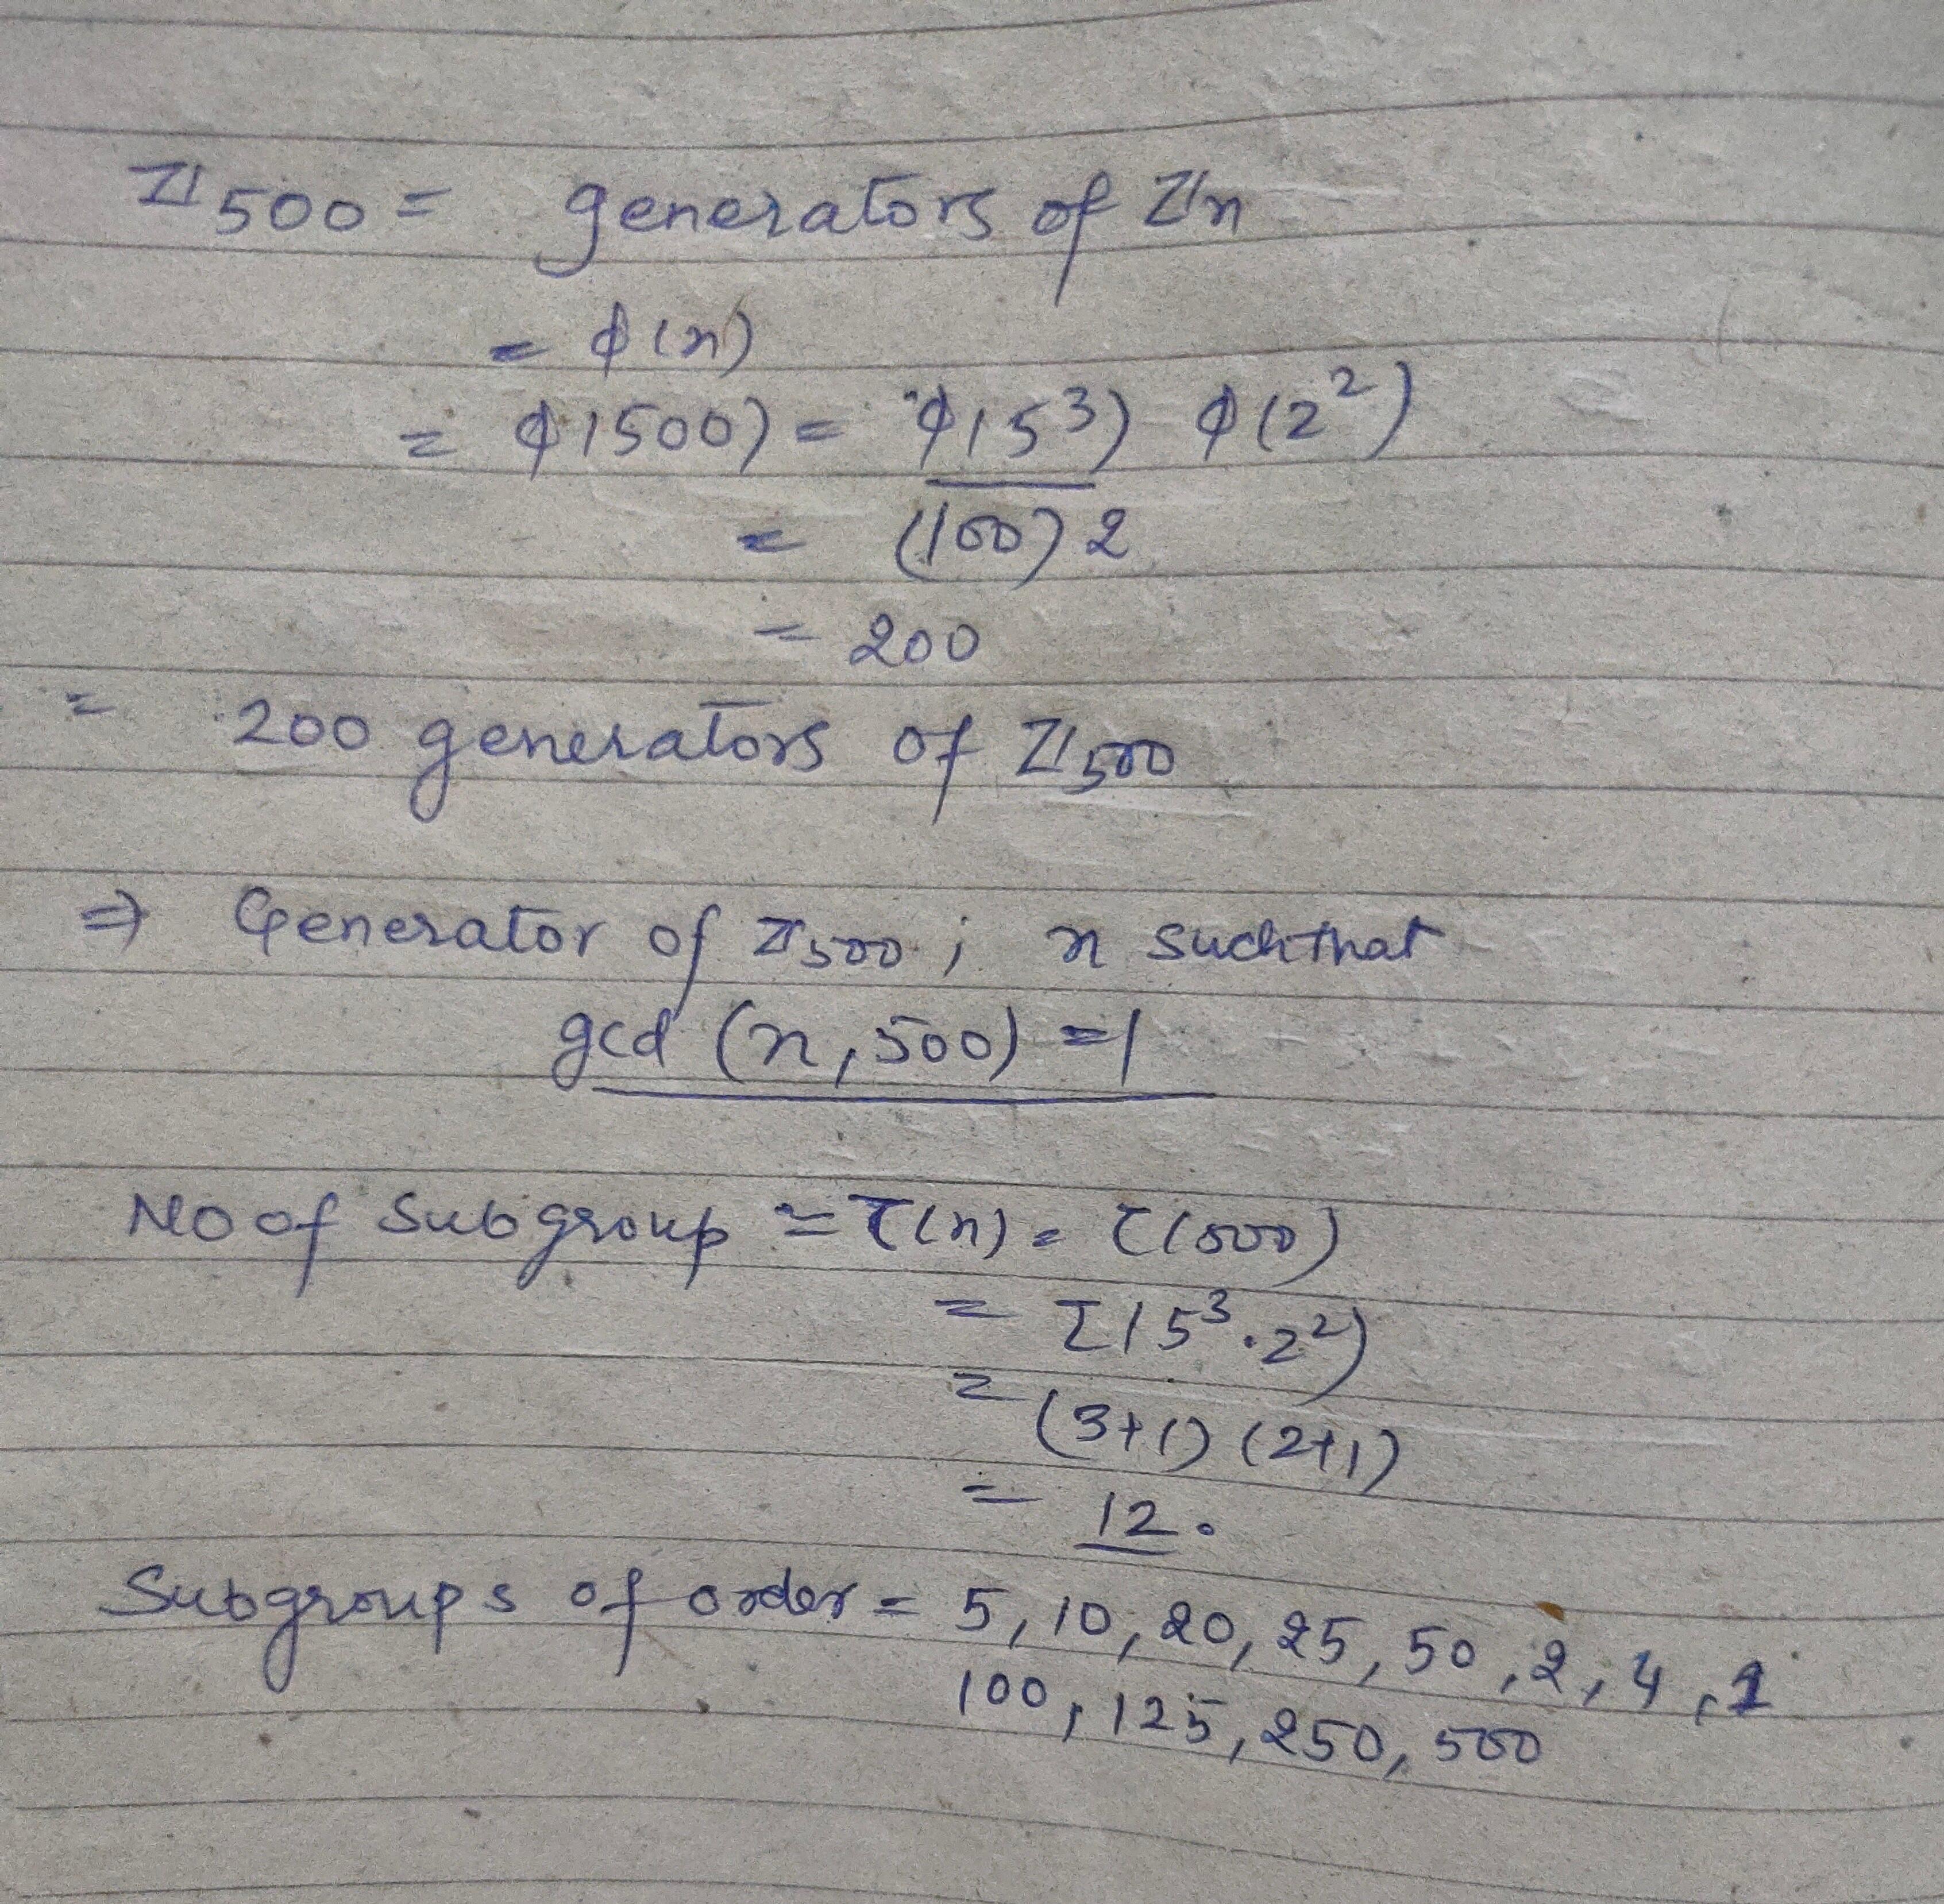 ℤ500 = generators of ℤn
= ϕ(n)
= ϕ(500) = ϕ(5³) ϕ(2²)
= (100) 2
= 200
= 200 generators of ℤ500
⇒ Generator of ℤ500 ; n such that
gcd (n, 500) = 1
No of Subgroup = τ(n) = τ(500)
= τ(5³·2²)
= (3+1) (2+1)
= 12.
Subgroups of order = 5, 10, 20, 25, 50, 2, 4, 1
100, 125, 250, 500